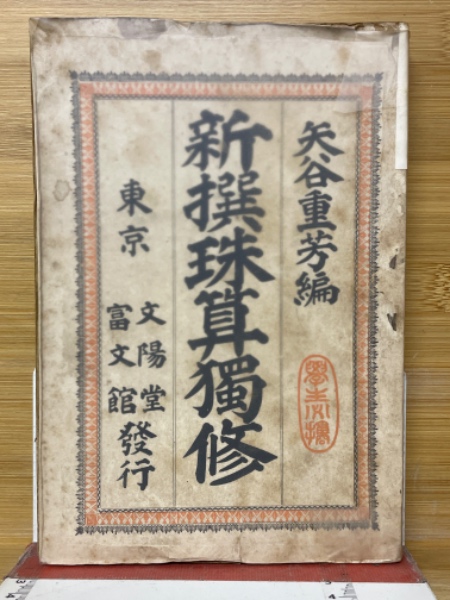 矢谷重芳編
新撰珠算獨修
東京
文陽堂
富文館
發行